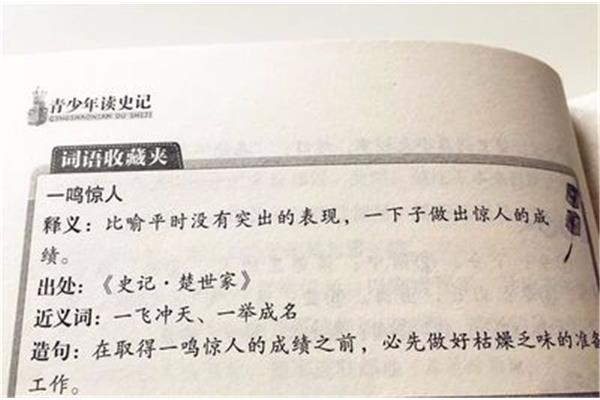 青少年读史记
QINGSHAONIAN DU SHIJI
词语收藏夹
一鸣惊人
释义：比喻平时没有突出的表现，一下子做出惊人的成
绩。
出处：《史记·楚世家》
近义词：一飞冲天、一举成名
造句：在取得一鸣惊人的成绩之前，必先做好枯燥乏味的准备
工作。